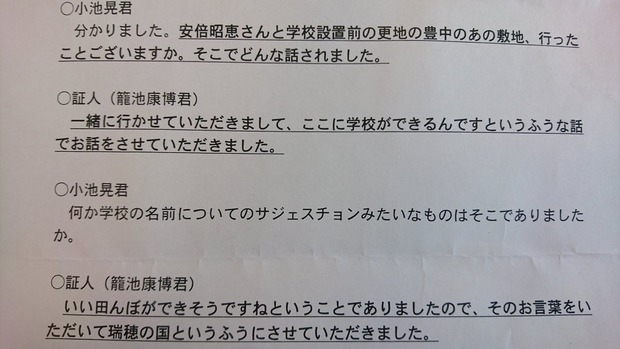 ○小池晃君
分かりました。安倍昭恵さんと学校設置前の更地の豊中のあの敷地、行った
ことございますか。そこでどんな話されました。
○証人（籠池康博君）
一緒に行かせていただきまして、ここに学校ができるんですというふうな話
でお話をさせていただきました。
○小池晃君
何か学校の名前についてのサジェスチョンみたいなものはそこでありました
か。
○証人（籠池康博君）
いい田んぼができそうですねということでありましたので、そのお言葉をい
ただいて瑞穂の国というふうにさせていただきました。